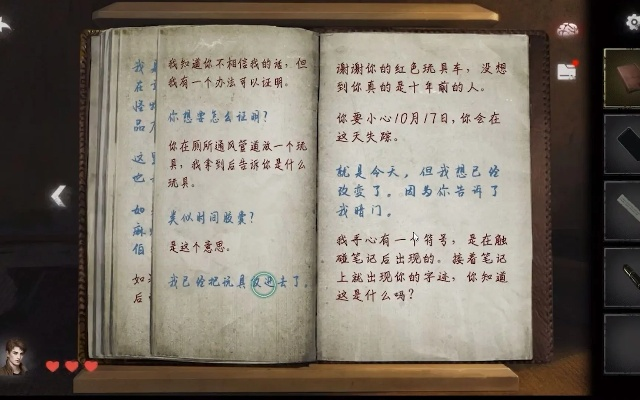 我
在
怪
品
这
也
如
麻
伯
如
后
我知道你不相信我的话，但
我有一个办法可以证明。
你想要怎么证明？
你在厕所通风管道放一个玩
具，我拿到后告诉你是什么
玩具。
类似时间胶囊？
是这个意思。
我已经把玩具放进去了。
谢谢你的红色玩具车，没想
到你真的是十年前的人。
你要小心10月17日，你会在
这天失踪。
就是今天，但我想已经
改变了。因为你告诉了
我暗门。
我手心有一个符号，是在触
碰笔记后出现的。接着笔记
上就出现你的字迹，你知道
这是什么吗？